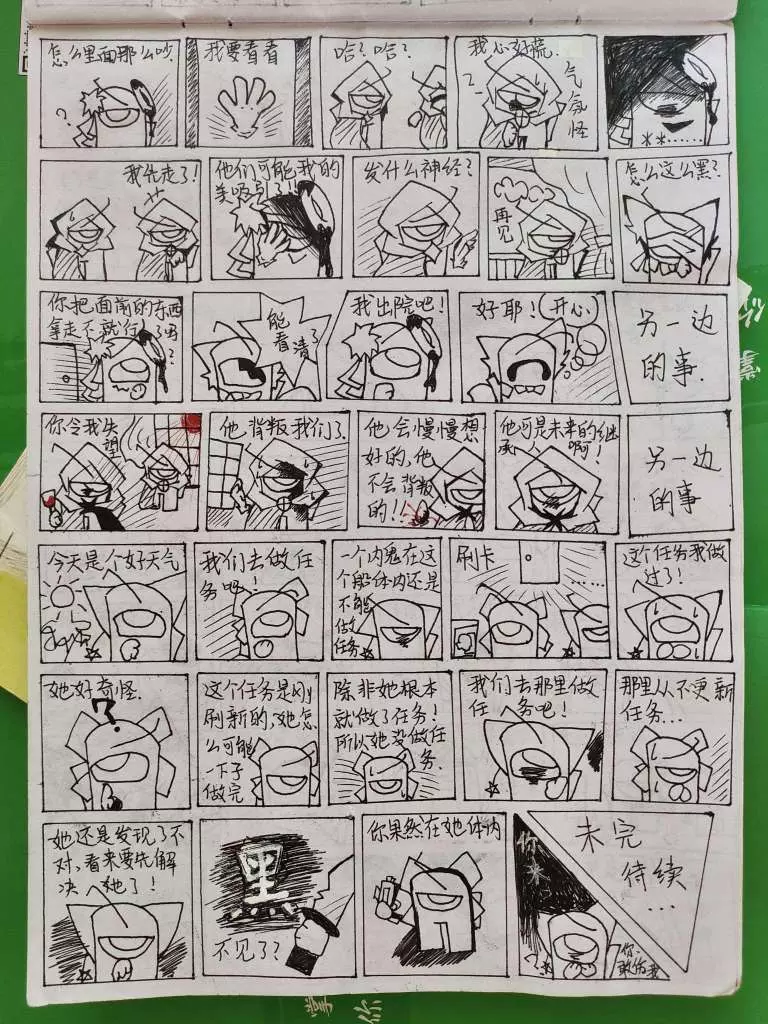 怎么里面那么吵
?
我要看看
哈?哈?
我心好慌.
气
氛
怪
**……
我先走了!
他们可能我的
美吸引了!
发什么神经?
再
见
怎么这么黑?
你把面前的东西
拿走不就行了吗
?
能
看
清
了
我出院吧!
好耶!(开心)
另一边
的事.
你令我失
望
他背叛我们了.
他会慢慢想
好的,他
不会背叛
的!
他可是未来的继
承人啊!
另一边
的事
今天是个好天气
我们去做任
务吧!
一个内鬼在这
个船体内还是
不能
做
任务
刷卡
……
这个任务我做
过了!
她好奇怪.
?
这个任务是刚
刷新的,她怎
么可能
一下子
做完
除非她根本
就做了任务!
所以她没做任
务.
我们去那里做
任务吧!
那里从不更新
任务...
她还是发现了不
对,看来要先解
决她了!
黑
不见了?
你果然在她体内
你
*
未完
待续
...
你
敢伤我